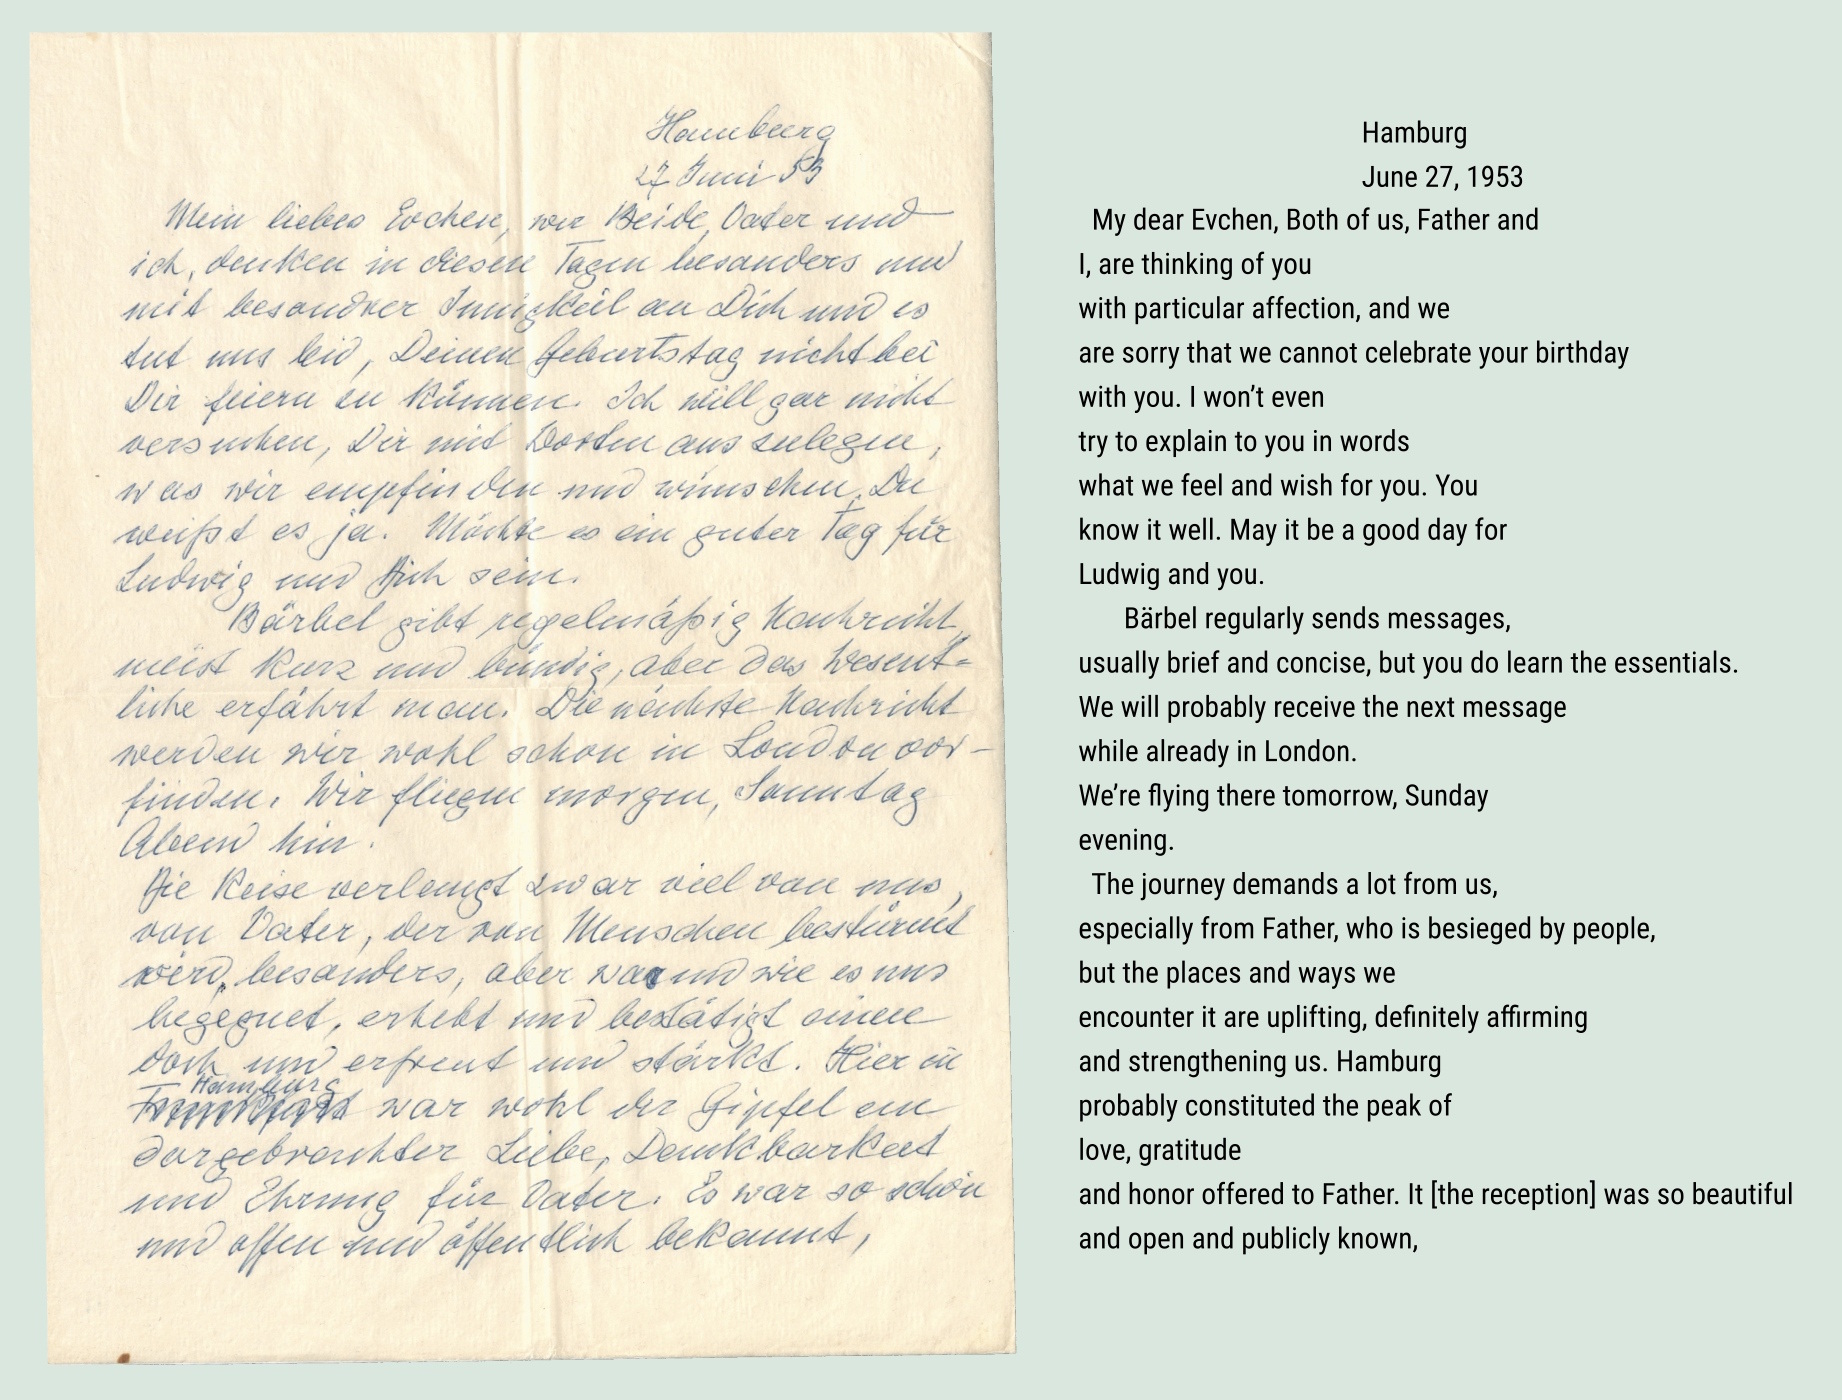 Hamburg
27 Juni 53
Mein liebes Evchen, wir Beide, Vater und
ich, denken in diesen Tagen besonders und
mit besondrer Innigkeit an Dich und es
tut uns leid, Deinen Geburtstag nicht bei
Dir feiern zu können. Ich will gar nicht
versuchen, Dir mit Worten auszulegen,
was wir empfinden und wünschen. Du
weißt es ja. Möchte es ein guter Tag für
Ludwig und Dich sein.
Bärbel gibt regelmäßig Nachricht,
meist kurz und bündig, aber das Wesent=
liche erfährt man. Die nächste Nachricht
werden wir wohl schon in London vor-
finden. Wir fliegen morgen, Sonntag
Abend hin.
Die Reise verlangt zwar viel von uns,
von Vater, der von Menschen bestürmt
wird, besonders, aber was und wie es uns
begegnet, erhebt und bestätigt einen
doch und erfreut und stärkt. Hier in
Hamburg
war wohl der Gipfel an
dargebrachter Liebe, Dankbarkeit
und Ehrung für Vater. Es war so schön
und offen und öffentlich bekannt,
Hamburg
June 27, 1953
My dear Evchen, Both of us, Father and
I, are thinking of you
with particular affection, and we
are sorry that we cannot celebrate your birthday
with you. I won’t even
try to explain to you in words
what we feel and wish for you. You
know it well. May it be a good day for
Ludwig and you.
Bärbel regularly sends messages,
usually brief and concise, but you do learn the essentials.
We will probably receive the next message
while already in London.
We’re flying there tomorrow, Sunday
evening.
The journey demands a lot from us,
especially from Father, who is besieged by people,
but the places and ways we
encounter it are uplifting, definitely affirming
and strengthening us. Hamburg
probably constituted the peak of
love, gratitude
and honor offered to Father. It [the reception] was so beautiful
and open and publicly known,